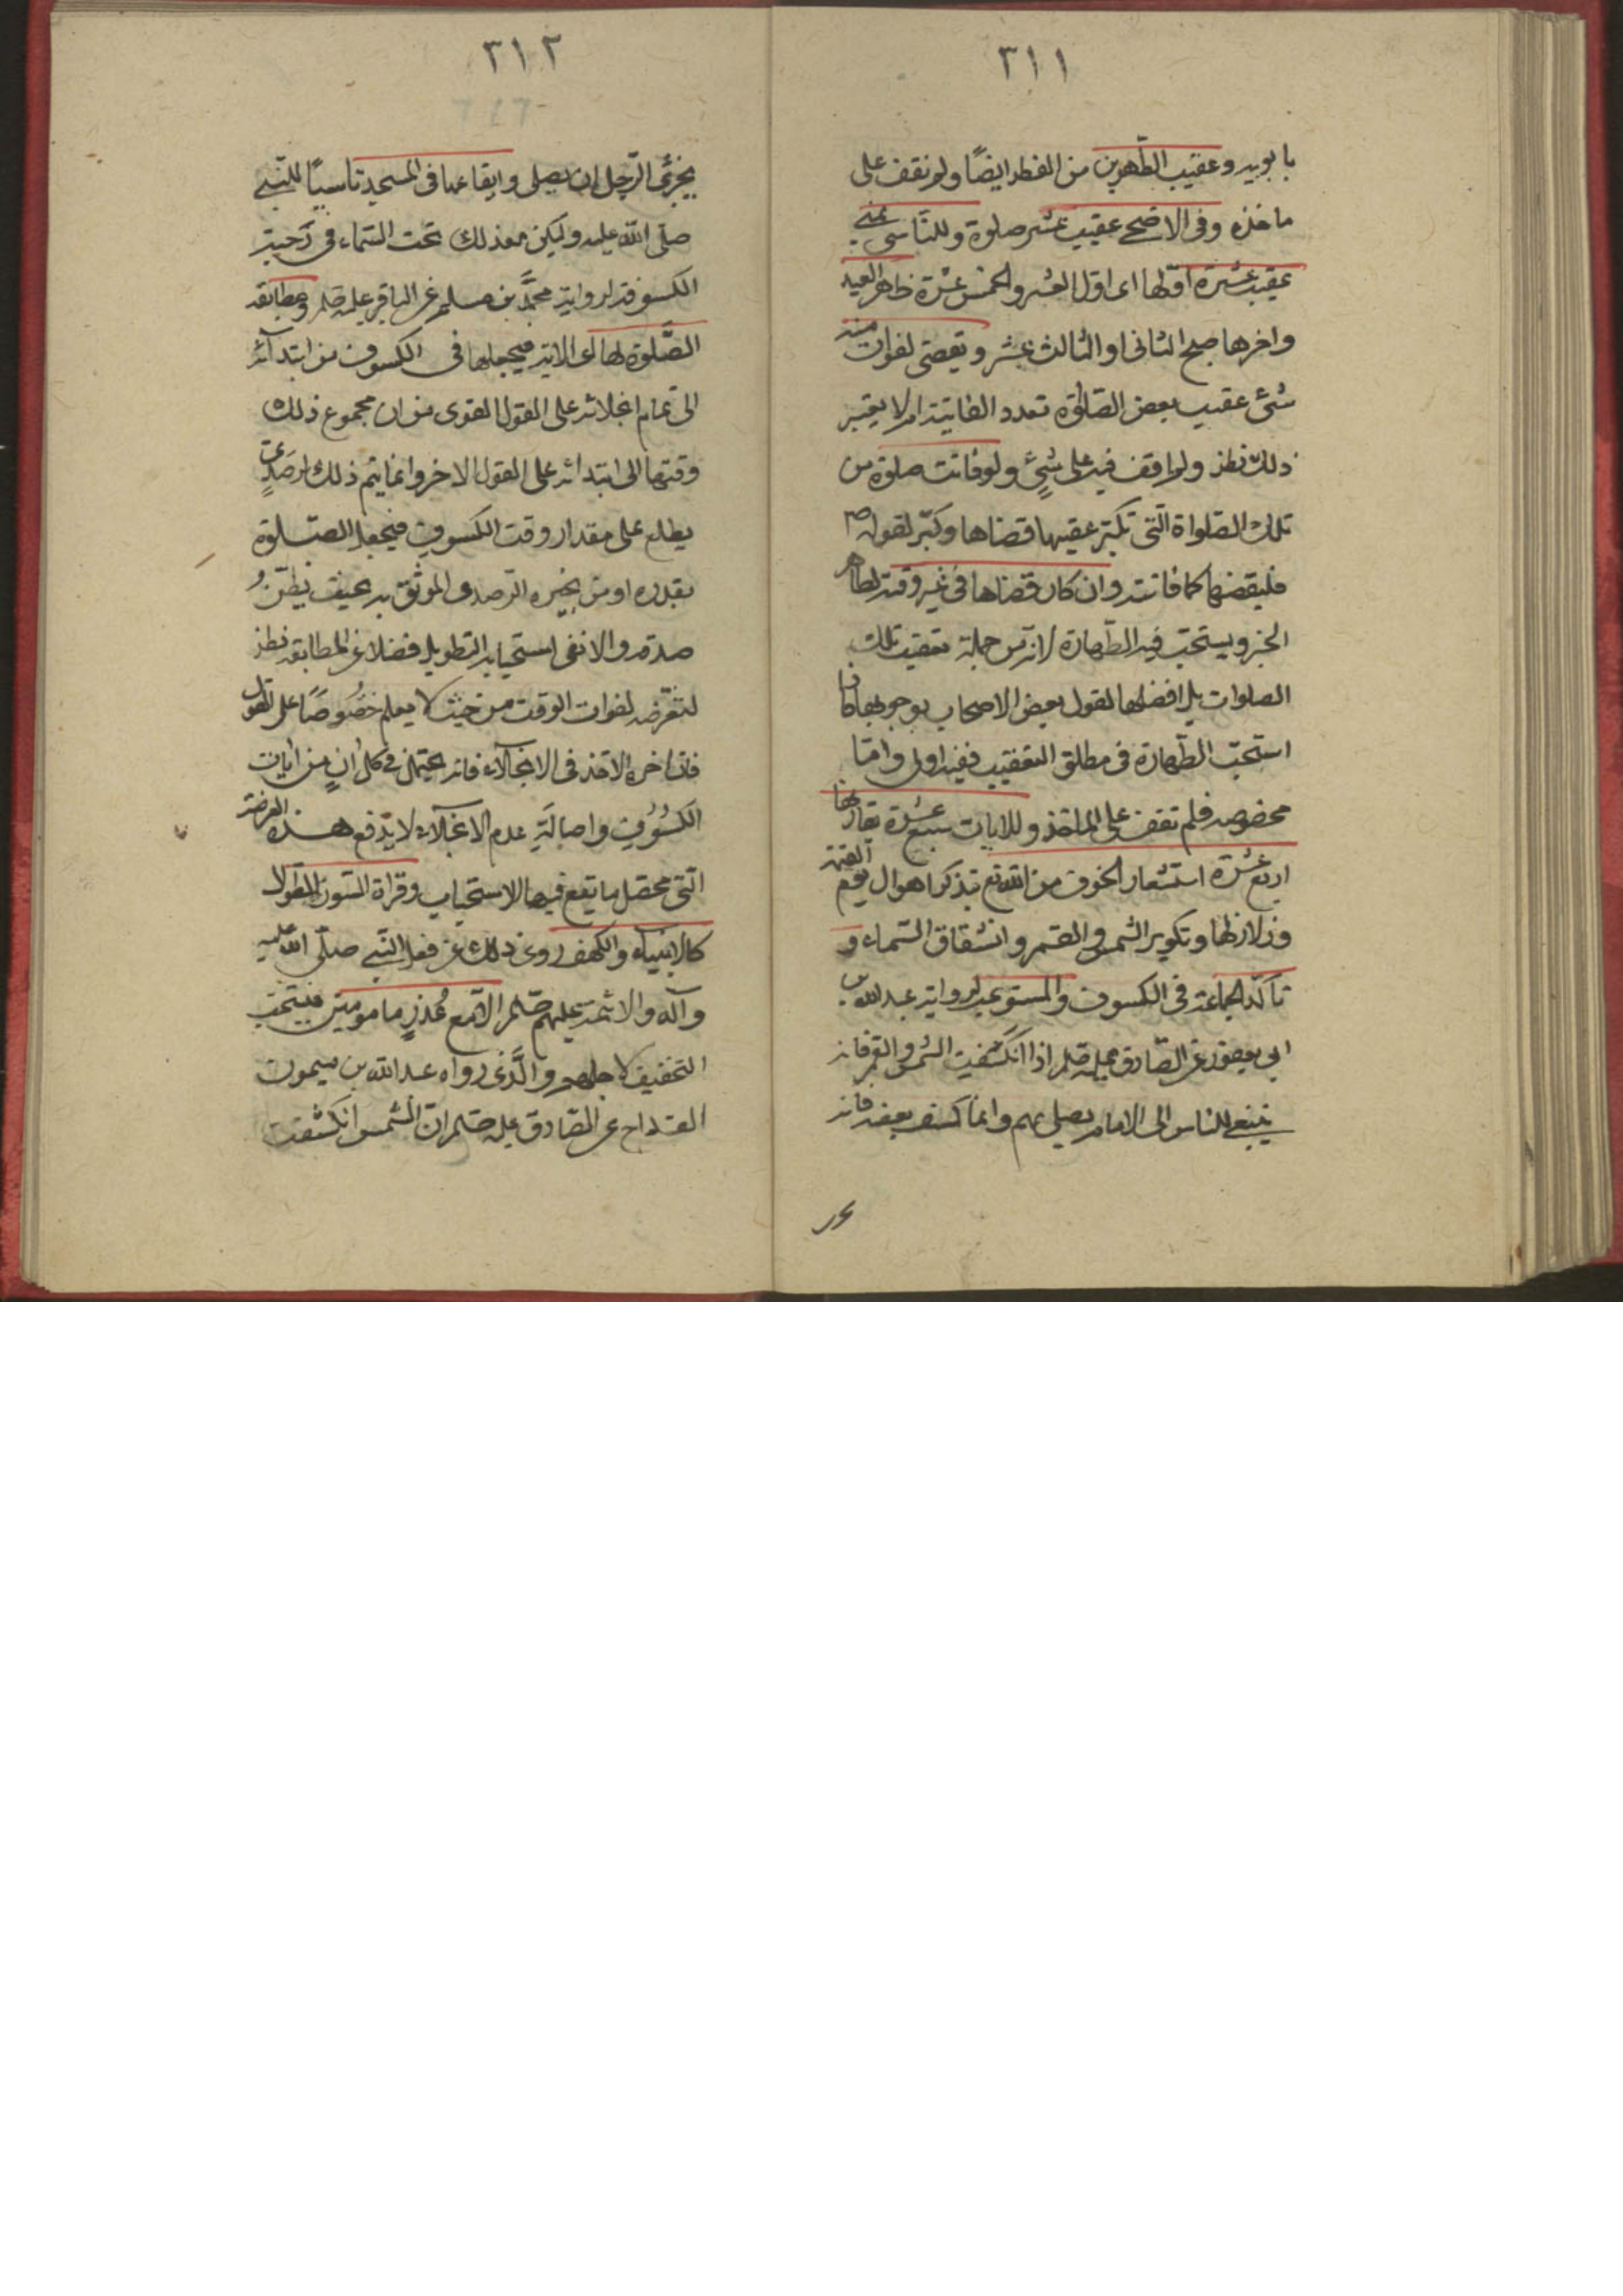 ٣١١
بابويه وعقيب الظهرين من الفطر ايضًا ولم نقف على
ماخذه وفى الاضحى عقيب عشر صلوة وللناسى بمنى
عقيب عشرة اوّلها اى اول العشر والخمس عشرة ظهر العيد
واخرها صبح الثانى او الثالث عشر ويقضى لفوات منه
شئ عقيب بعض الصلوة تعدد الفايتة ام لا يعتبر
ذلك نظر ولم اقف فيه على شئٍ ولو فاتت صلوة من
تلك الصلواة الّتى تكبّر عقيبها قضاها وكبّر لقوله ص
فليقضها كما فاتته وان كان قضاها فى غير وقته لظاهر
الخبر ويستحب فيه الطّهارة لانه من جملة تعقيب تلك
الصلوات بل افضلها لقول بعض الاصحاب بوجوبها فاذا
استحبّ الطّهارة فى مطلق التعقيب ففيه اولى وامّا
بخصوصه فلم نقف على الماخذ وللايات سبع عشرة يقارنها
اربع عشرة استشعار الخوف من الله تع بتذكر اهوال يوم القيٰمة
وزلازلها وتكوير الشمس والقمر وانشقاق السّماء و
تاكّد الجماعة فى الكسوف والمستوعب لرواية عبد الله بن
ابى يعفور عن الصّادق عليه صلم اذا انكسفت الشمس والقمر فانه
ينبغى للناس الى الامام يصلى بهم وانما كسف بعضه فانه
٣١٢
يجزئ الرّجل ان يصلى وايقاعها فى المسجد تاسيًا للنبى
صلّى الله عليه وليكن مع ذلك تحت السّماء فى رَحبته
الكسوفة لرواية محمّد بن مسلم عن الباقر عليه صلم ومطابقة
الصَّلوة لها اى الاية فيجعلها فى الكسوف من ابتدائه
الى تمام انجلائه على القول القوى من ان مجموع ذلك
وقتها الى ابتدائه على القول الاخر وانما يتم ذلك لرصدٍى
يطلع على مقدار وقت الكسوف فيجعل الصّلوة
بقدره او من يخبره الرّصدى الموثّق به بحيث يظنّ
صدقه والا نفى استحباب التطويل فضلا عن المطابقة نظر
لتعرّضه لفوات الوقت من حيث لا يعلم خصُوصًا على القول
فان اخره الاخذ فى الانجلاء فانه يحتمل فى كل انٍ من ايات
الكسُوُفِ واصالَةِ عدم الانجلاء لا يدفع هذه
الّتى محصّل ما يقع فيها الاستحباب وقراة السّور الطّوال
كالانبياء والكهف روى ذلك عن فعل النّبى صلّى الله عليه
وآله والائمة عليهم صلم الّا مع عُذرٍ مامومين فيستحب
التخفيف لاجلهم والَّذى رواه عبد الله بن ميمون
القداح عن الصّادق عليه صلم انّ الشمس انكسفت